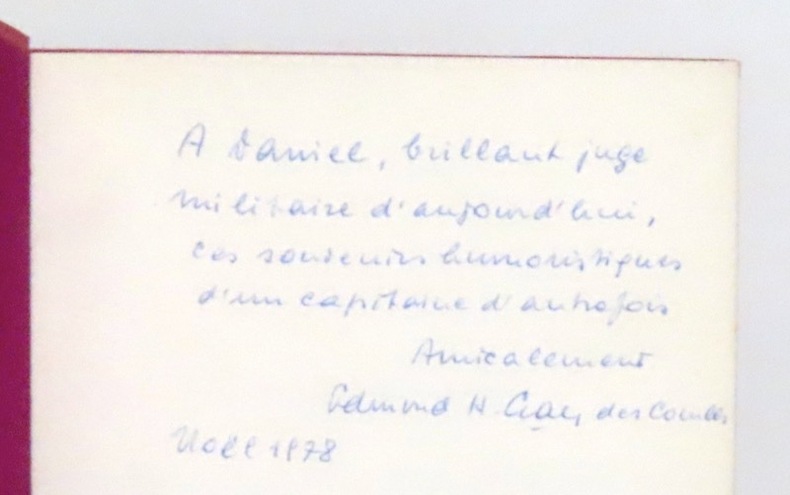 A Daniel, brillant juge
militaire d'aujourd'hui,
ces souvenirs humoristiques
d'un capitaine d'autrefois
Amicalement
Edmond H. Crausaz des Combes
Noël 1978